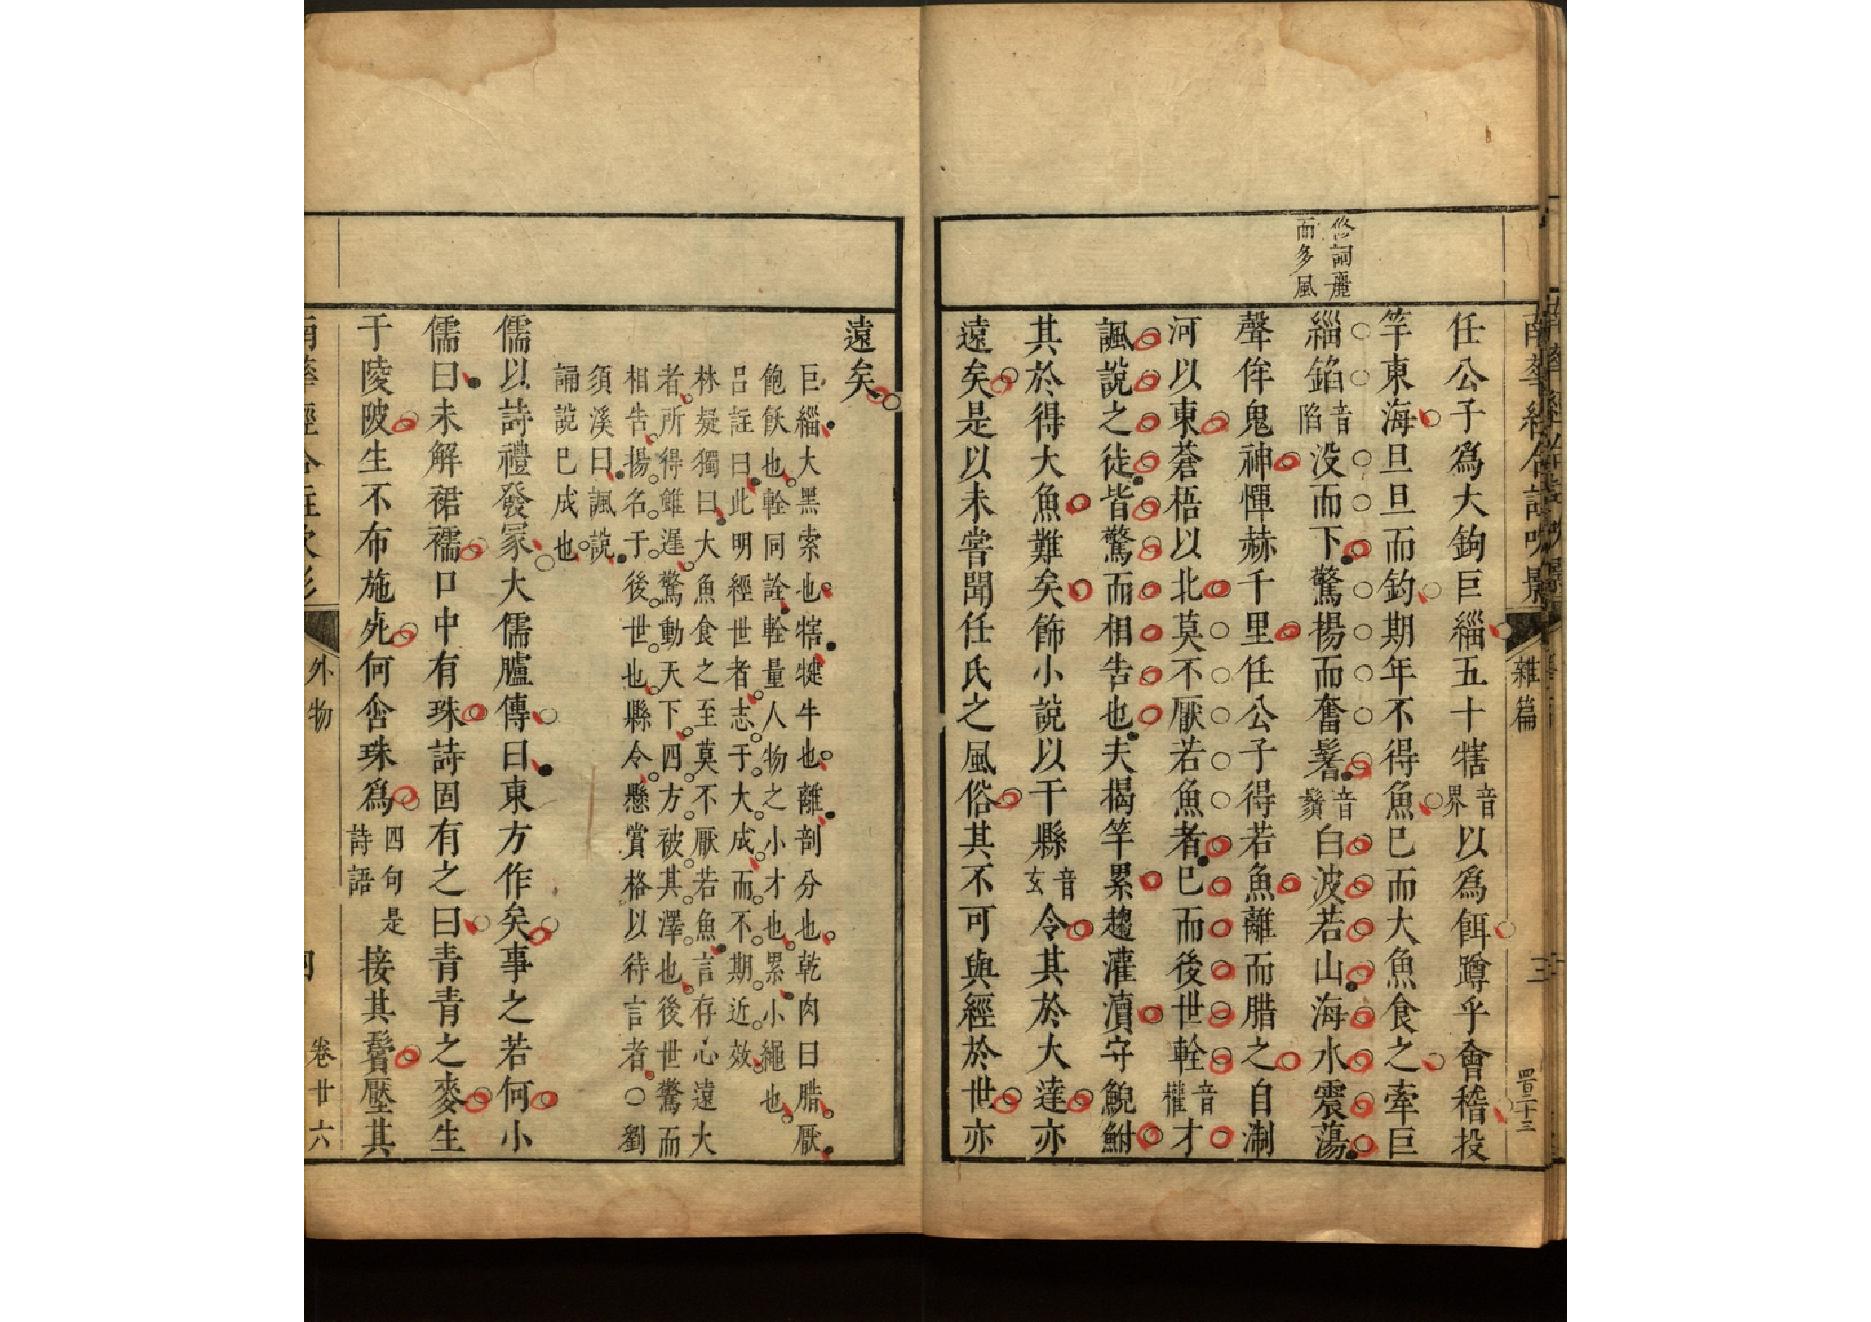 任公子爲大鉤巨緇五十犗音界以爲餌蹲乎會稽投
竿東海旦旦而釣期年不得魚已而大魚食之牽巨
緇錎音陷没而下驚揚而奮鬐音鬚白波若山海水震蕩
聲侔鬼神憚赫千里任公子得若魚離而腊之自淛
河以東蒼梧以北莫不厭若魚者已而後世輇音權才
諷說之徒皆驚而相告也夫揭竿累趨灌瀆守鯢鮒
其於得大魚難矣飾小說以干縣音玄令其於大達亦
遠矣是以未嘗聞任氏之風俗其不可與經於世亦
詞麗
而多風
雜篇
三
遠矣
巨緇大黑索也犗犍牛也離剖分也乾肉曰腊厭
飽飫也輇同詮輇量人物之小才也累小繩也
呂註曰此明經世者志于大成而不期近效
林疑獨曰大魚食之至莫不厭若魚言存心遠大
者所得雖遲驚動天下四方被其澤也後世驚而
相告揚名于後世也縣令懸賞格以待言者〇劉
須溪曰諷說
誦說已成也
儒以詩禮發冢大儒臚傳曰東方作矣事之若何小
儒曰未解裙襦口中有珠詩固有之曰青青之麥生
于陵陂生不布施死何含珠爲四句是詩語接其鬢壓其
外物
卷廿六